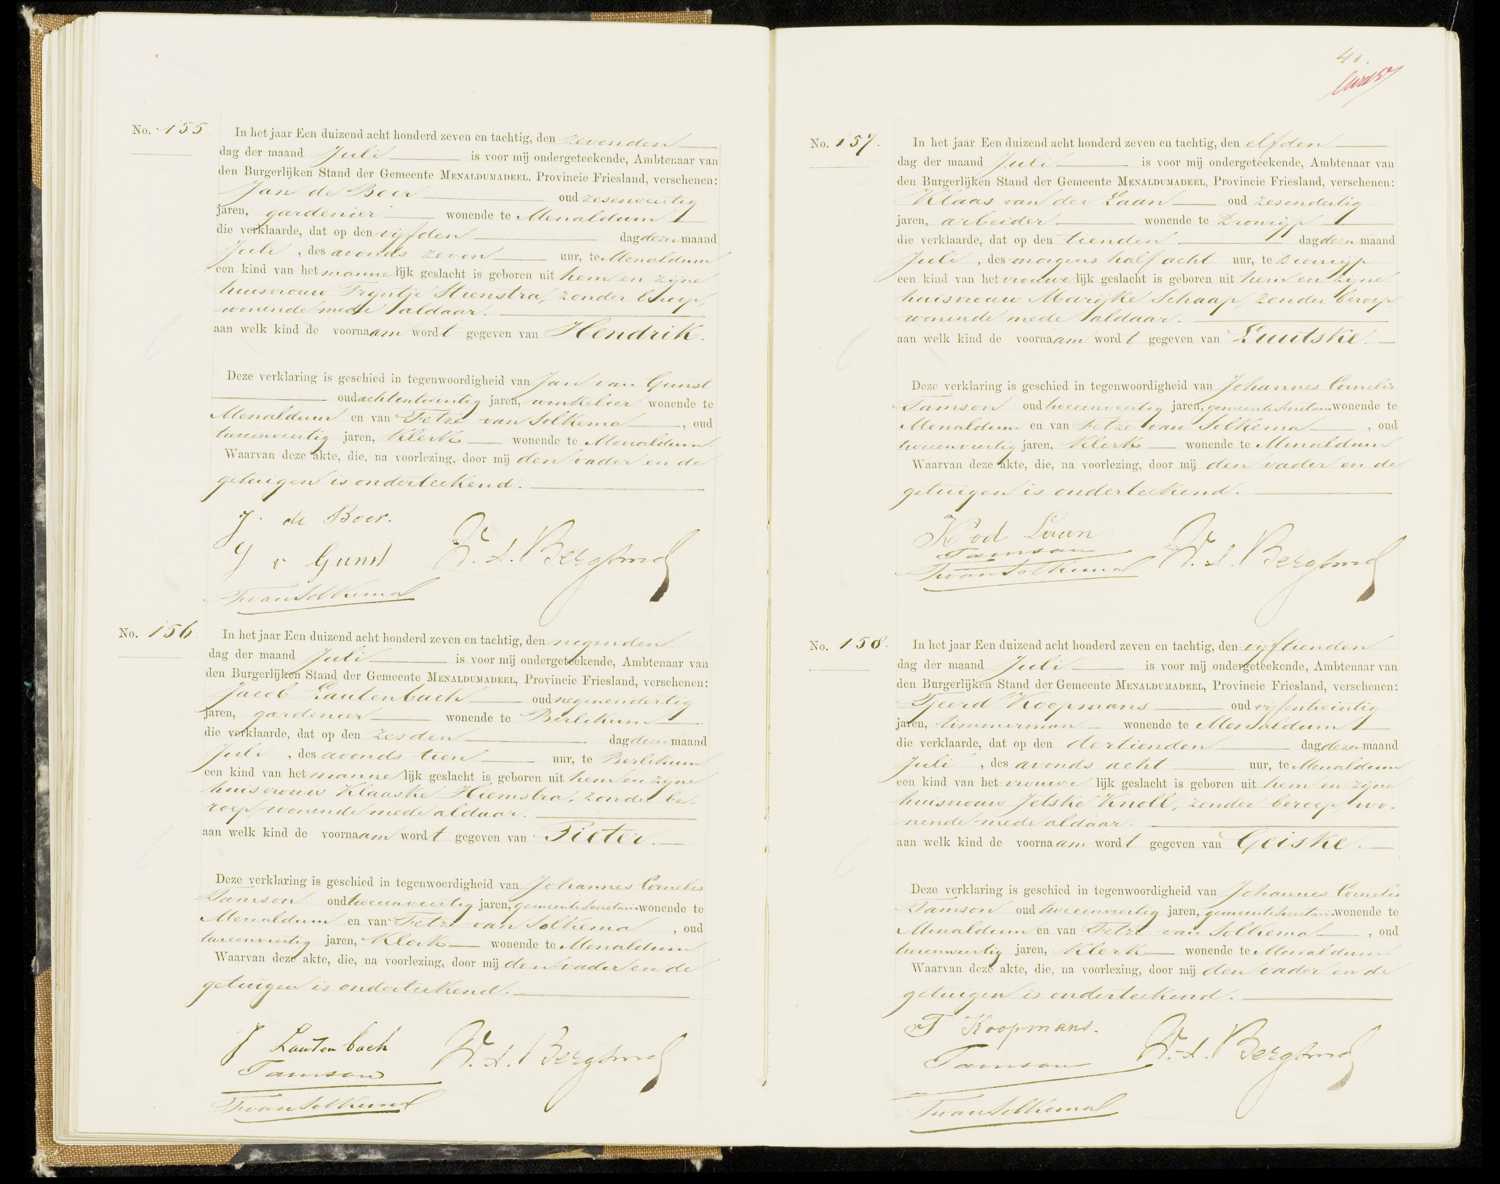 No. 155
In het jaar Een duizend acht honderd zeven en tachtig, den zevenden
dag der maand Juli is voor mij ondergeteekende, Ambtenaar van
den Burgerlijken Stand der Gemeente MENALDUMADEEL, Provincie Friesland, verschenen:
Jan de Boer oud zesenveertig
jaren, gardenier wonende te Menaldum
die verklaarde, dat op den vijfden dag dezer maand
Juli, des avonds zeven uur, te Menaldum
een kind van het mannelijk geslacht is geboren uit hem en zijne
huisvrouw Trijntje Stienstra, zonder beroep,
wonende mede aldaar.
aan welk kind de voornaam wordt gegeven van Hendrik.
Deze verklaring is geschied in tegenwoordigheid van Jan van Gunst
oud achtentwintig jaren, winkelier wonende te
Menaldum en van Tetze van Solkema, oud
tweeenveertig jaren, Klerk wonende te Menaldum
Waarvan deze akte, die, na voorlezing, door mij den vader en de
getuigen is onderteekend.
J. de Boer.
J v Gunst
TvanSolkema
No. 156
In het jaar Een duizend acht honderd zeven en tachtig, den negenden
dag der maand Juli is voor mij ondergeteekende, Ambtenaar van
den Burgerlijken Stand der Gemeente MENALDUMADEEL, Provincie Friesland, verschenen:
Jacob Lautenbach oud negenendertig
jaren, gardenier wonende te Berlikum
die verklaarde, dat op den zesden dag dezer maand
Juli, des avonds tien uur, te Berlikum
een kind van het mannelijk geslacht is geboren uit hem en zijne
huisvrouw Klaaske Hiemstra, zonder be-
roep, wonende mede aldaar.
aan welk kind de voornaam wordt gegeven van Pieter.
Deze verklaring is geschied in tegenwoordigheid van Johannes Cornelis
Tamson oud tweeenveertig jaren, gemeentesecretaris wonende te
Menaldum en van Tetze van Solkema, oud
tweeenveertig jaren, Klerk wonende te Menaldum
Waarvan deze akte, die, na voorlezing, door mij den vader en de
getuigen is onderteekend.
J Lautenbach
Tamson
TvanSolkema
41.
No. 157.
In het jaar Een duizend acht honderd zeven en tachtig, den elfden
dag der maand Juli is voor mij ondergeteekende, Ambtenaar van
den Burgerlijken Stand der Gemeente MENALDUMADEEL, Provincie Friesland, verschenen:
Klaas van der Laan oud zesendertig
jaren, arbeider wonende te Dronrijp
die verklaarde, dat op den tienden dag dezer maand
Juli, des morgens half acht uur, te Dronrijp
een kind van het vrouwelijk geslacht is geboren uit hem en zijne
huisvrouw Marijke Schaap, zonder beroep
wonende mede aldaar.
aan welk kind de voornaam wordt gegeven van Luutske.
Deze verklaring is geschied in tegenwoordigheid van Johannes Cornelis
Tamson oud tweeenveertig jaren, gemeentesecretaris wonende te
Menaldum en van Tetze van Solkema, oud
tweeenveertig jaren, Klerk wonende te Menaldum
Waarvan deze akte, die, na voorlezing, door mij den vader en de
getuigen is onderteekend.
K vd Laan
Tamson
TvanSolkema
No. 158.
In het jaar Een duizend acht honderd zeven en tachtig, den vijftienden
dag der maand Juli is voor mij ondergeteekende, Ambtenaar van
den Burgerlijken Stand der Gemeente MENALDUMADEEL, Provincie Friesland, verschenen:
Tjeerd Koopmans oud vijfentwintig
jaren, timmerman wonende te Menaldum
die verklaarde, dat op den dertienden dag dezer maand
Juli, des avonds acht uur, te Menaldum
een kind van het vrouwelijk geslacht is geboren uit hem en zijne
huisvrouw Jelske Knoll, zonder beroep, wo-
nende mede aldaar.
aan welk kind de voornaam wordt gegeven van Geiske.
Deze verklaring is geschied in tegenwoordigheid van Johannes Cornelis
Tamson oud tweeenveertig jaren, gemeentesecretaris wonende te
Menaldum en van Tetze van Solkema, oud
tweeenveertig jaren, Klerk wonende te Menaldum
Waarvan deze akte, die, na voorlezing, door mij den vader en de
getuigen is onderteekend.
T Koopmans.
Tamson
TvanSolkema